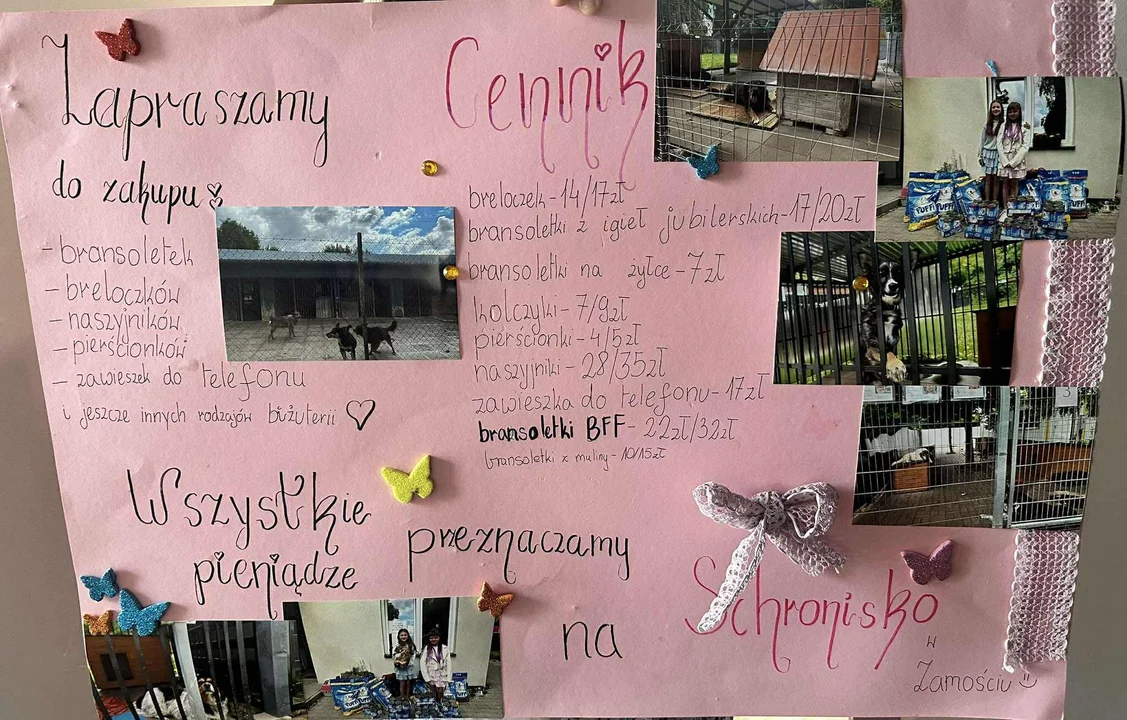 Zapraszamy
do zakupu
- bransoletek
- breloczków
- naszyjników
- pierścionków
- zawieszek do telefonu
i jeszcze innych rodzajów biżuterii ♡
Cennik
breloczek - 14/17zł
bransoletki z igieł jubilerskich - 17/20zł
bransoletki na żyłce - 7zł
kolczyki - 7/9zł
pierścionki - 4/5zł
naszyjniki - 28/35zł
zawieszka do telefonu - 17zł
bransoletki BFF - 22zł/32zł
bransoletki z muliny - 10/15zł
Wszystkie
pieniądze
przeznaczamy
na
Schronisko
w
Zamościu
PUFFI PUFFI